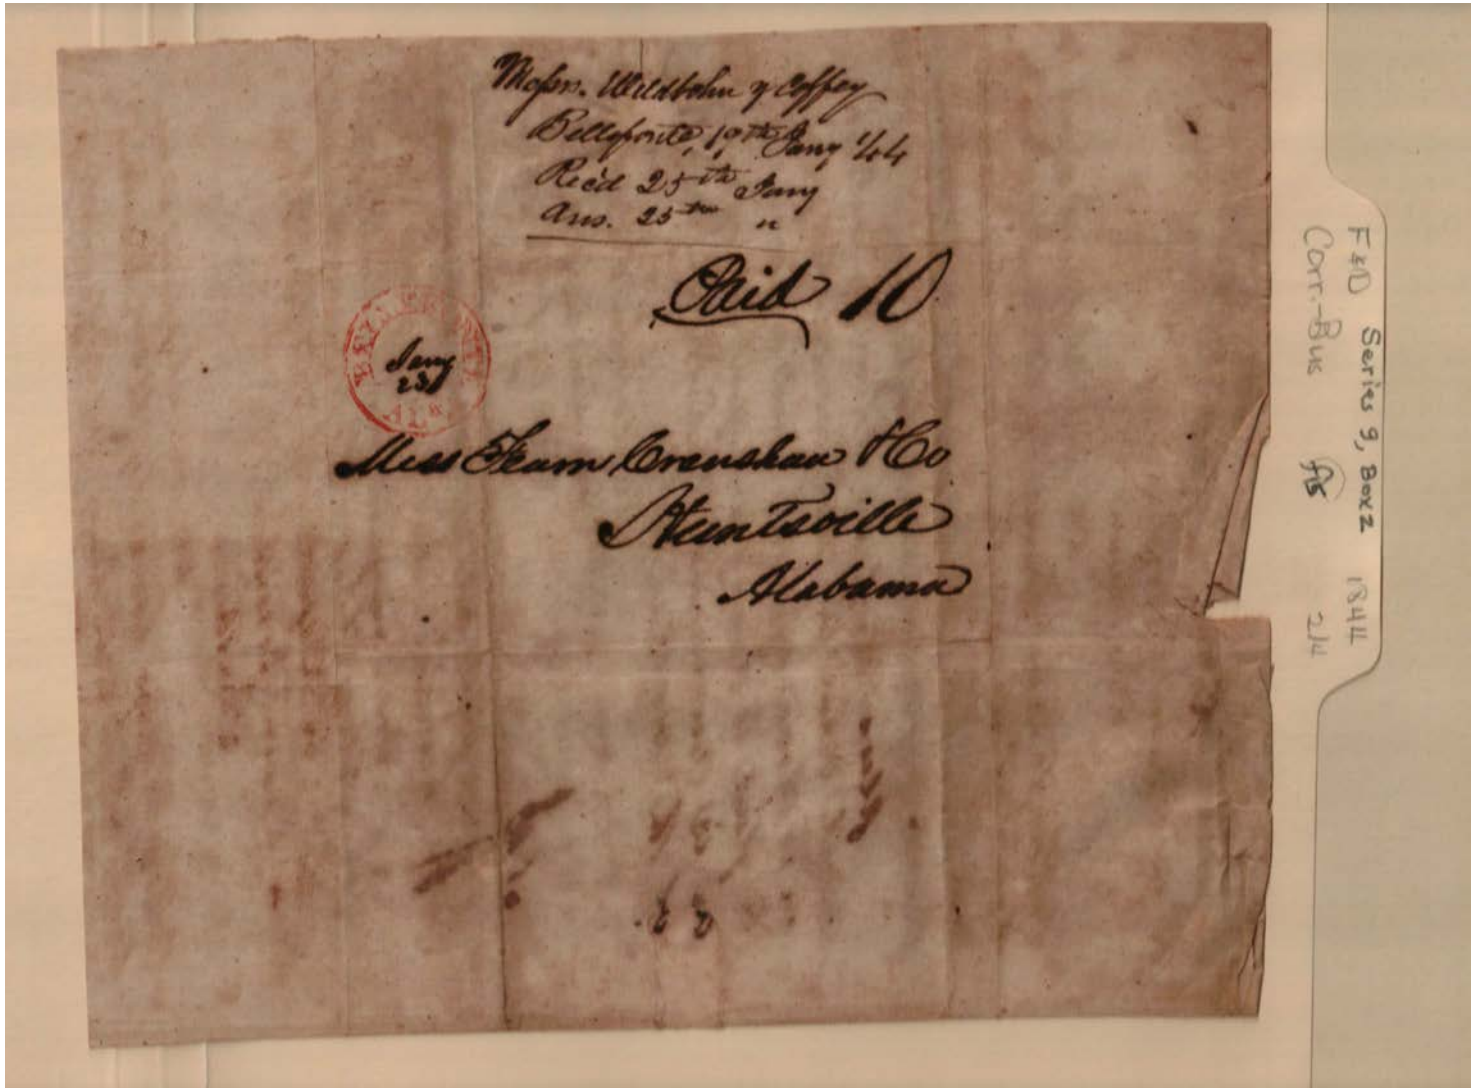 Messrs. Wildbohn & Coffey
Bellefonte, 19th Jany '44
Rec'd 25th Jany
Ans. 25th "
Paid 10
BELLEFONTE
Jany
23
ALA
Mess Fearn Crenshaw & Co
Huntsville
Alabama
F&D Series 9, Box 2 1844
Corr.-Bus f15 2/4